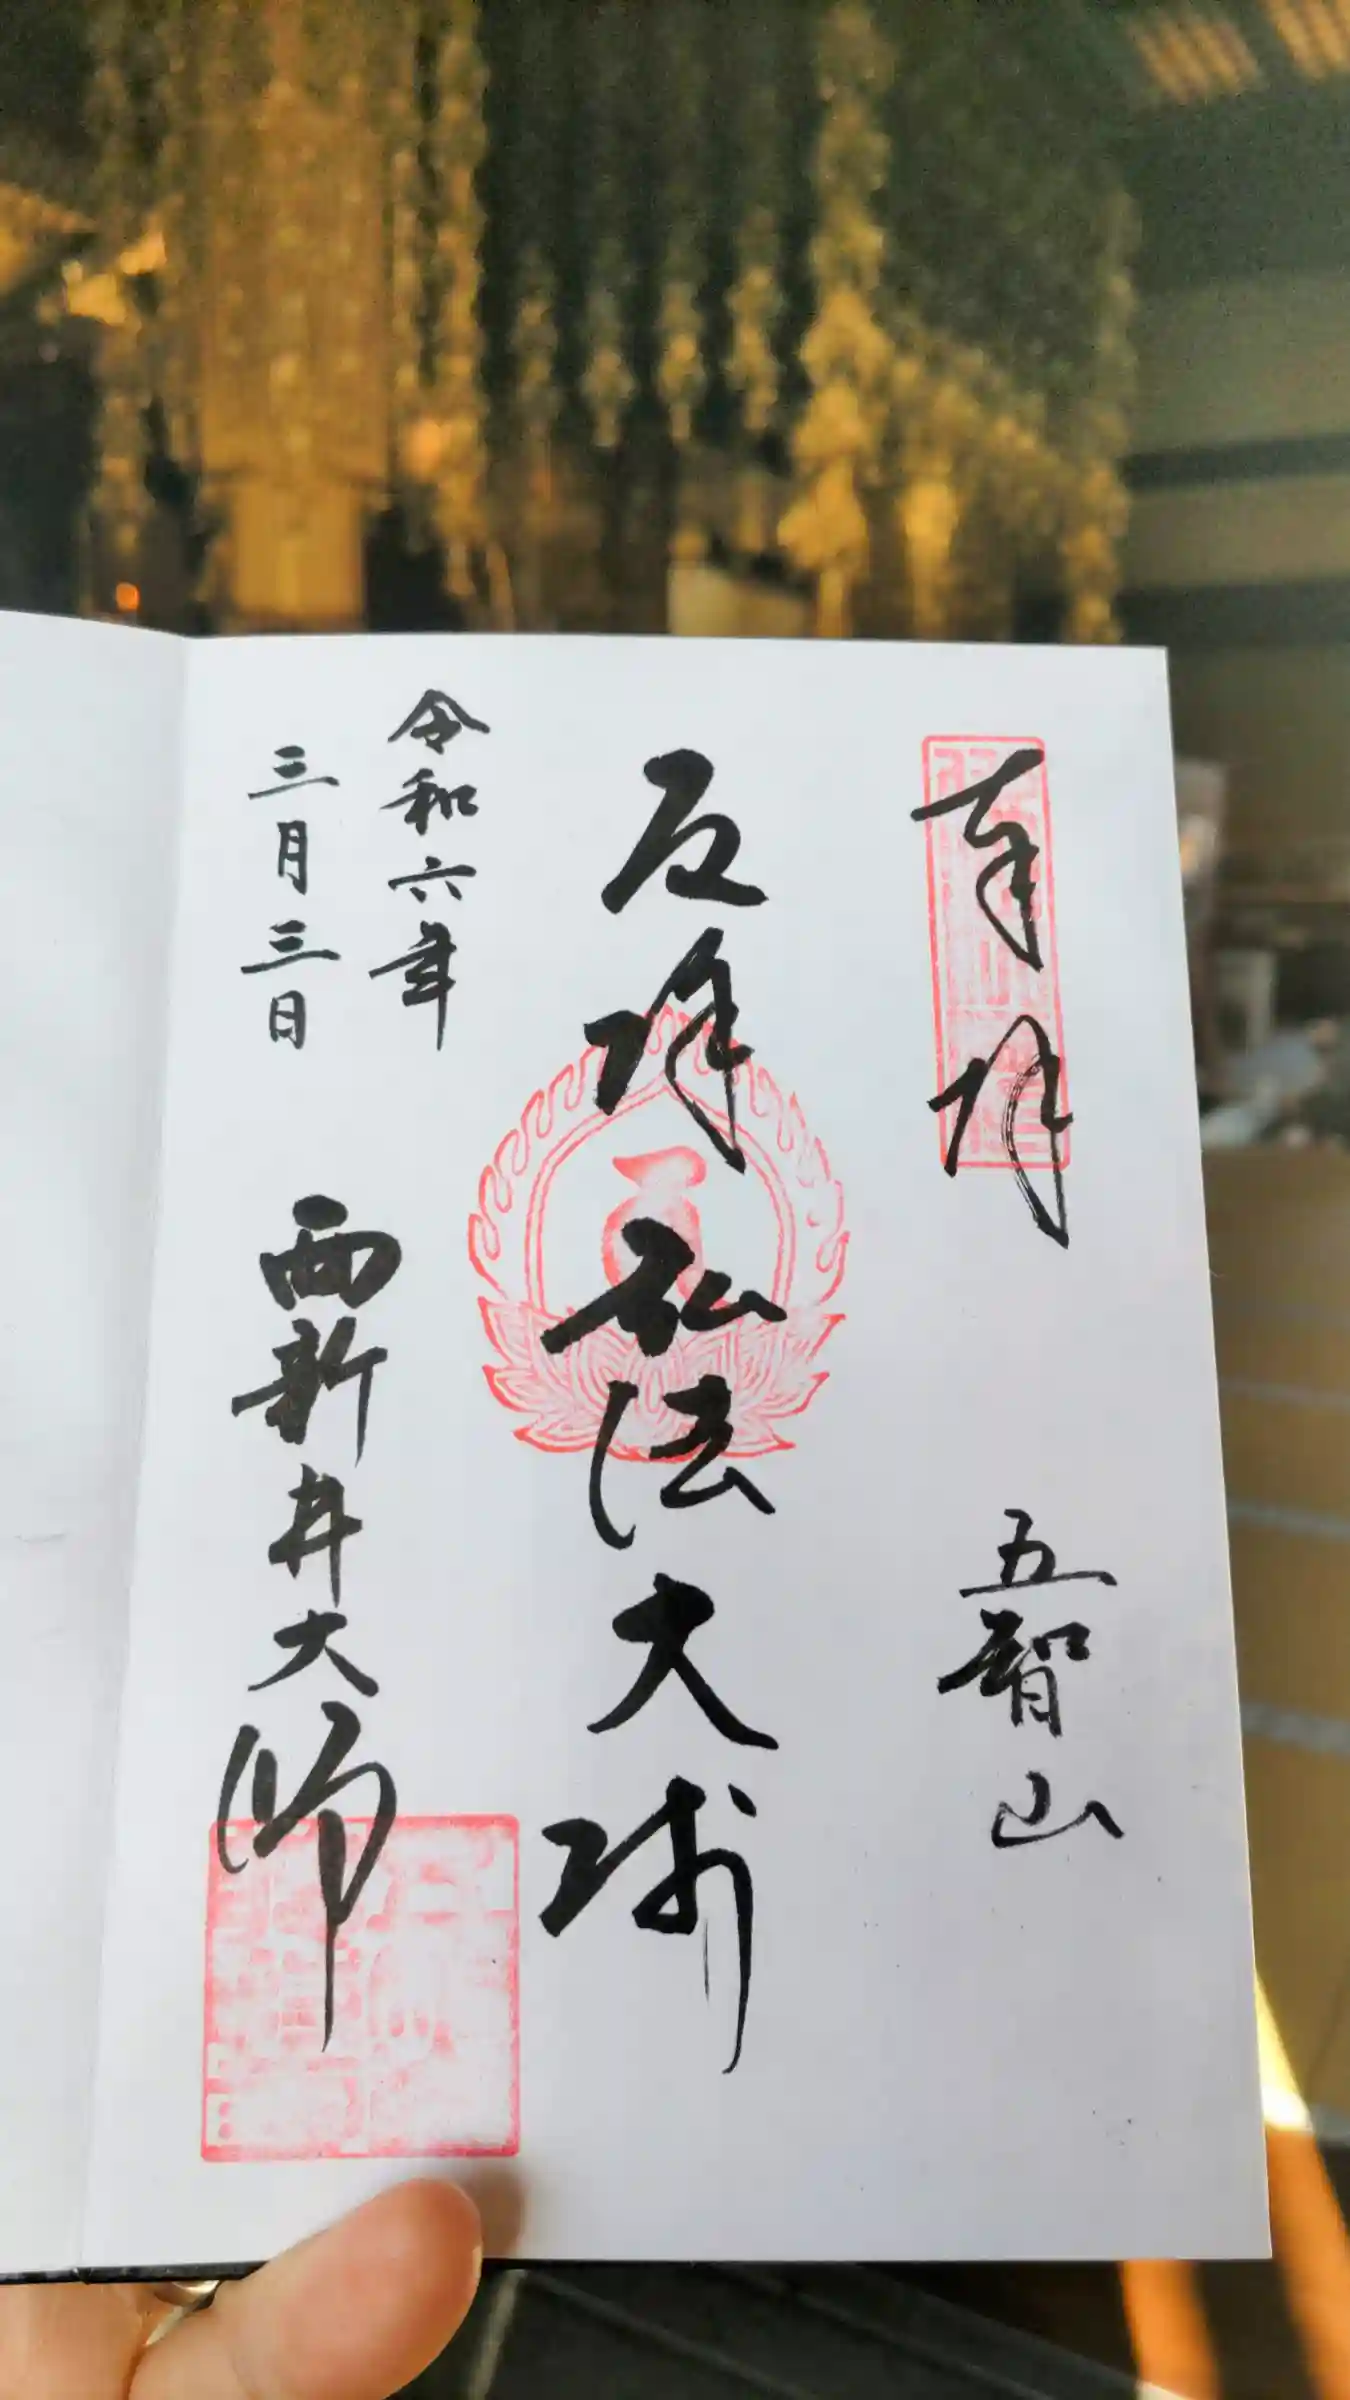 奉拝
五智山
厄除弘法大師
令和六年
三月三日
西新井大師